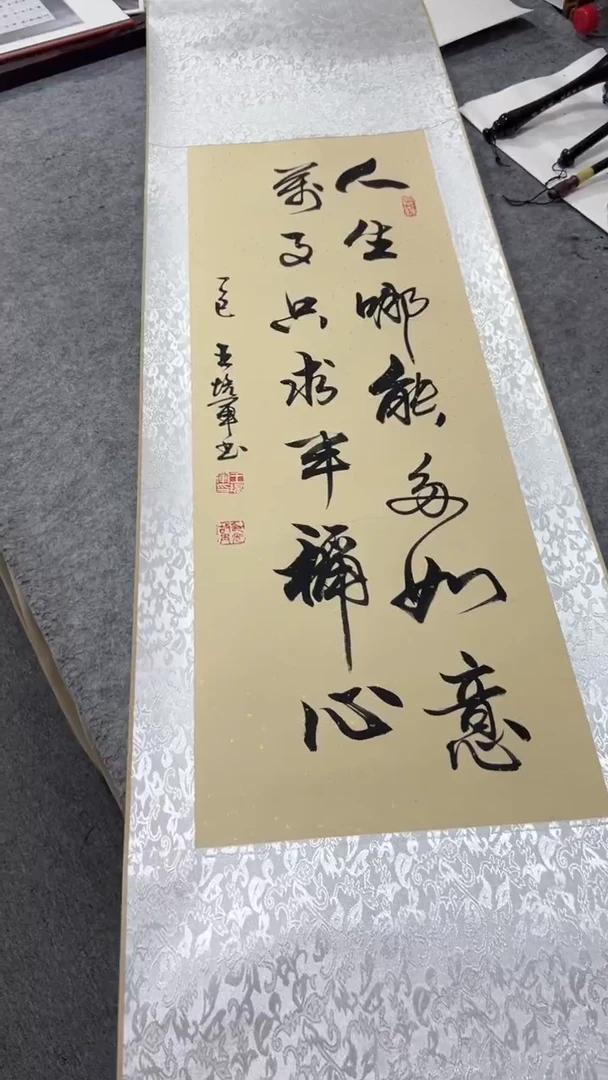 人生哪能多如意
萬事只求半稱心
乙巳 王培軍书